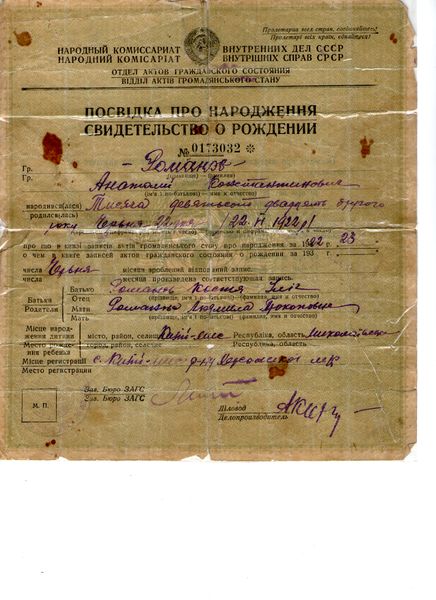 Пролетарии всех стран, соединяйтесь!
Пролетарі всіх країн, єднайтеся!
НАРОДНЫЙ КОМИССАРИАТ ВНУТРЕННИХ ДЕЛ СССР
НАРОДНИЙ КОМІСАРІАТ ВНУТРІШНІХ СПРАВ СРСР
ОТДЕЛ АКТОВ ГРАЖДАНСКОГО СОСТОЯНИЯ
ВІДДІЛ АКТІВ ГРОМАДЯНСЬКОГО СТАНУ
ПОСВІДКА ПРО НАРОДЖЕННЯ
СВИДЕТЕЛЬСТВО О РОЖДЕНИИ
№ 0173032 *
Гр. Романов
Гр. (прізвище) — (фамилия)
Анатолий Константинович
(ім'я і по-батькові) — (имя и отчество)
народився(лася) Тисяча девятьсот двадцять другого
родился(лась)
року 22 /22. VI 1922 р/
про що в книзі записів актів громадянського стану про народження за 1922 23
о чем в книге записей актов гражданского состояния о рождении за 193 г.
числа місяця зроблений відповідний запис.
числа месяца произведена соответствующая запись.
Батько Романов Костя
Батьки Отец (прізвище, ім'я і по-батькові) — (фамилия, имя и отчество)
Родители Мати Романова Людмила Прокоповна
Мать (прізвище, ім'я і по-батькові) — (фамилия, имя и отчество)
Місце народження дитини місто, район, селище Республіка, область
Место рождения ребенка город, район, селение Республика, область
Місце реєстрації с.
Место регистрации
Зав. Бюро ЗАГС
Зав. Бюро ЗАГС
М. П.
Діловод
Делопроизводитель